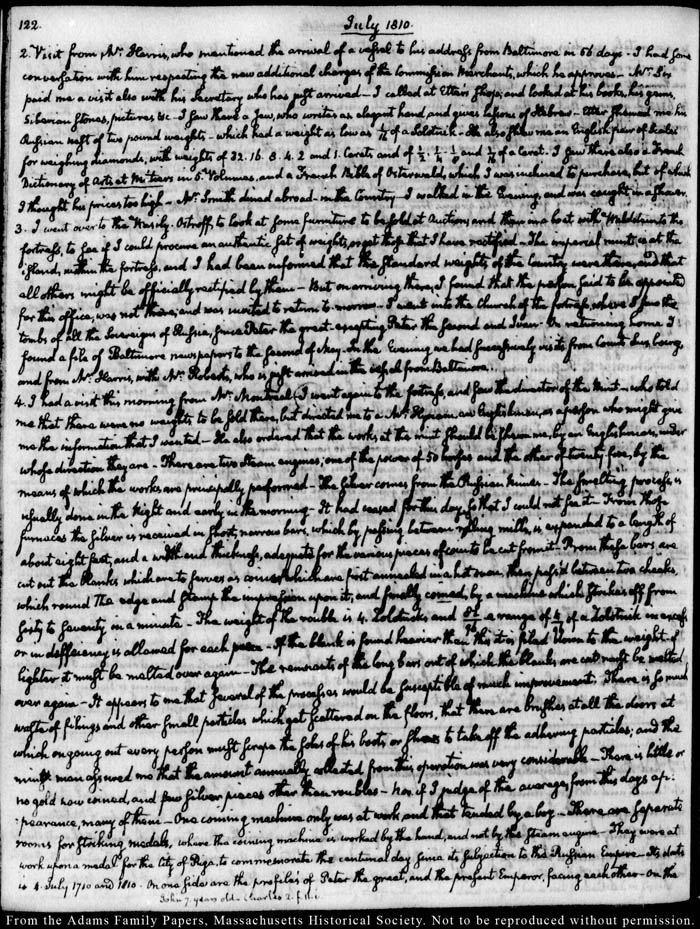 122.
July 1810.
2. Visit from Mr. Harris, who mentioned the arrival of a vessel to his address from Baltimore in 56 days. I had some
conversation with him respecting the new additional charges of the Commission Merchants, which he approves — Mr. Six
paid me a visit also with his Secretary who has just arrived — I called at Etter's shop, and looked at his books, his gems,
Siberian stones, pictures &c — I saw there a Jew, who writes an elegant hand, and gives lessons of Hebrew — Etter shewed me his
Russian nest of two pound weights — which had a weight as low as 1/16 of a Solotnick. He also shew me an English pair of scales
for weighing diamonds, with weights of 32. 16. 8. 4. 2 and 1. Carats and of 1/2 . 1/4 . 1/8 and 1/16 of a Carat. I saw there also a French
Dictionary of Arts et Metiers in 5 Volumes, and a French Bible of Osterwald, which I was inclined to purchase, but of which
I thought his prices too high — Mr. Smith dined abroad — in the Country — I walked in the Evening, and was caught in a shower.
3. I went over to the Wasily-Ostroff, to look at some furniture to be sold at Auction; and then in a boat with Waldstein to the
fortress, to see if I could procure an authentic set of weights, or get those that I have rectified — The imperial mint, is at the
island, within the fortress, and I had been informed that the Standard weights of the Country were there, and that
all others might be officially rectified by them — But on arriving there, I found that the person said to be appointed
for this office, was not there; and was invited to return to-morrow — I went into the Church of the fortress, where I saw the
tombs of all the Sovereigns of Russia, since Peter the great — excepting Peter the Second and Ivan — On returning home I
found a file of Baltimore newspapers to the second of May. In the Evening we had successively visits from Count
and from Mr. Harris, with Mr. Roberts, who is just arrived in the vessel from Baltimore.
4. I had a visit this morning from Mr. Montreal — I went again to the fortress, and saw the director of the Mint — who told
me that there were no weights to be sold there, but directed me to a Mr. an Englishman, as a person who might give
me the information that I wanted — He also ordered that the works, at the mint should be shewn me, by an Englishman, under
whose direction they are — There are two steam engines; one of the power of 50 horses and the other of twenty five, by the
means of which the works are principally performed — The silver comes from the Russian mines — The smelting process, is
usually done in the Night and early in the morning — It had ceased for this day, so that I could not see it — From those
furnaces the silver is received in short, narrow bars, which by passing between rolling mills, is expanded to a length of
about eight feet, and a width and thickness, adequate for the various pieces of coin to be cut from it — From these bars are
cut out the blanks which are to serve as coins, which are first annealed in a hot oven, then pass'd between two cheeks,
which round the edge and stamp the impression upon it; and finally coined, by a machine which strikes off from
sixty to seventy in a minute — The weight of the rouble is 4. Zolotnicks and a range of of a Zolotnick in excess
or in deficiency is allowed for each piece — If the blank is found heavier than this it is filed down to the weight — if
lighter it must be melted over again — The remnants of the long bars out of which the blanks are cut must be melted
over again — It appears to me that several of the processes would be susceptible of much improvement. There is so much
waste of filings and other small particles which get scattered on the floors, that there are brushes at all the doors at
which on going out every person must scrape the soles of his boots or shoes to take off the adhering particles; and the
mint man assured me that the amount annually collected from this operation was very considerable — There is little or
no gold now coined, and few silver pieces other than roubles — nor, if I judge of the average, from this day's ap-
pearance, many of them — One coining machine only was at work, and that tended by a boy — There are separate
rooms for striking medals, where the coining machine is worked by the hand, and not by the steam engine — They were at
work upon a medal for the City of Riga, to commemorate the centennial day since its subjection to the Russian Empire — Its date
is 4. July 1710 and 1810. On one side are the profiles of Peter the great, and the present Emperor, facing each other — On the
John 7. years old — Charles 2. f. 11. i.
From the Adams Family Papers, Massachusetts Historical Society. Not to be reproduced without permission.